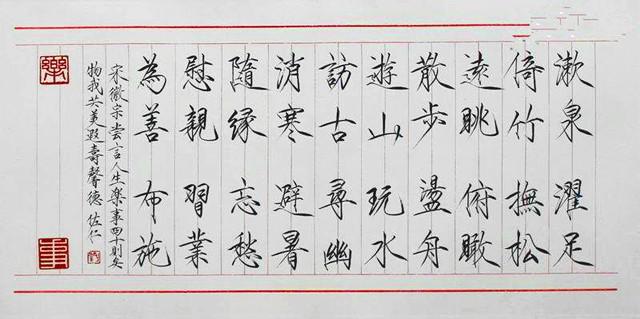 漱泉 濯足
倚竹 撫松
遠眺 俯瞰
散步 盪舟
遊山 玩水
訪古 尋幽
消寒 避暑
隨緣 忘愁
慰親 習業
為善 布施
宋徽宗嘗言人生樂事四十則矣
物我共美遐壽馨德 佐仁
樂
事